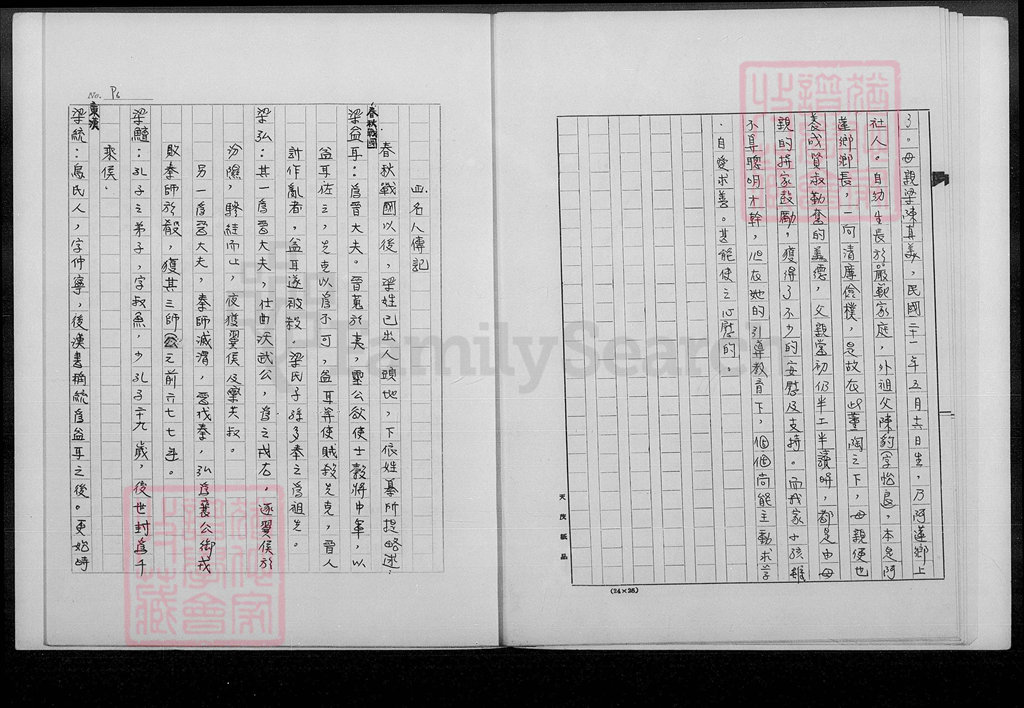 3。母親梁陳真義，民國二十一年五月六日生，乃阿蓮鄉上
社人。自幼生長於嚴範家庭，外祖父陳豹字怡良，本是阿
蓮鄉鄉長，一向清廉儉樸，是故在此薰陶之下，母親便也
養成賢淑勤奮的美德，父親當初仍半工半讀時，都是由母
親的持家鼓勵，獲得了不少的安慰及支持。而我家小孩雖
不算聰明才幹，但在她的引導教育下，個個尚能主動求學
，自愛求善。甚能使之心慰的。
天茂紙品
(24×25)
No. P6
四.名人傳記
春秋戰國以後，梁姓已出人頭地，下依姓纂所提略述：
春秋戰國
梁益耳：爲晉大夫。晉蒐於夷，靈公欲使士縠將中軍，以
益耳佐之，先克以爲不可，益耳等使賊殺先克，晉人
討作亂者，益耳遂被殺，梁氏子孫多奉之爲祖先。
梁弘：其一爲晉大夫，仕曲沃武公，爲之戎右，逐翼侯於
汾隰，驂絓而止，夜獲翼侯及欒共叔。
另一爲晉大夫，秦師滅滑，晉伐秦，弘爲襄公御戎
敗秦師於殽，獲其三師公元前六二七年。
梁鱣：孔子之弟子，字叔魚，少孔子二十九歲，後世封爲千
乘侯。
東漢
梁統：烏氏人，字仲寧，後漢書稱統爲益耳之後。更始時
FamilySearch